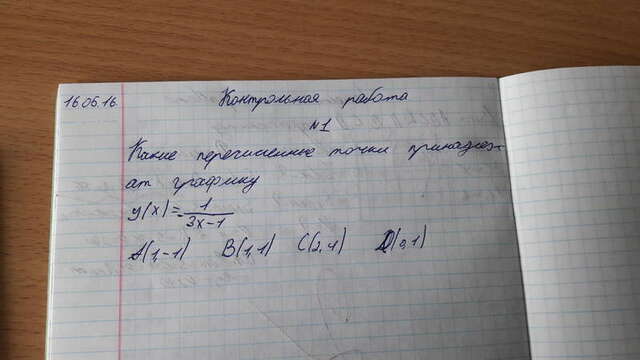 16.06.16
Контрольная работа
№1
Какие перечисленные точки принадлеж-
ат графику
y(x) = 1/(3x-1)
A(1;-1) B(1,1) C(0,1) D(0,1)